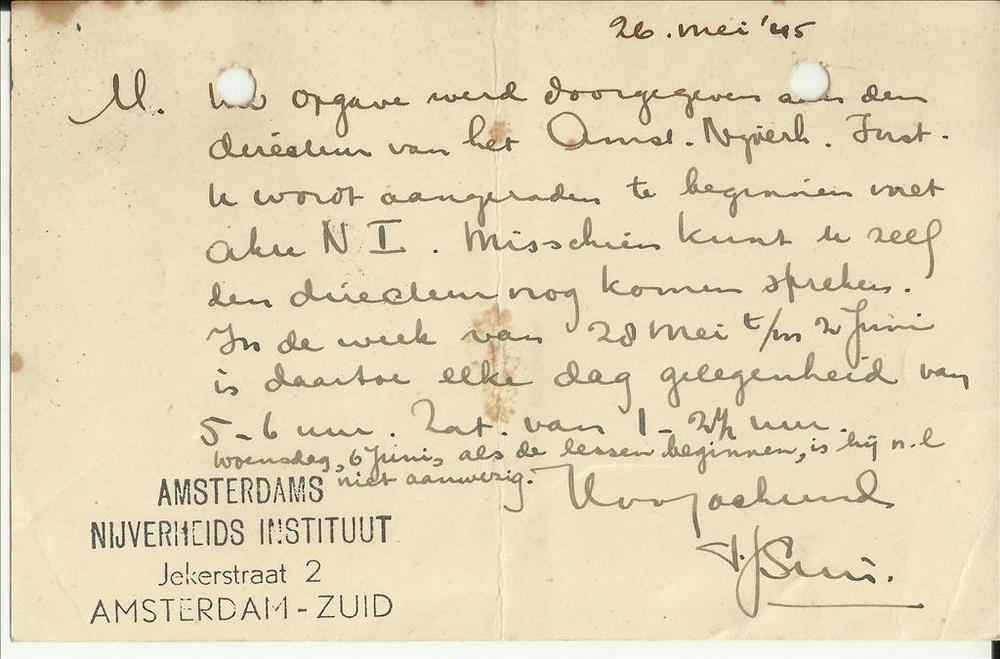 26. mei '45
M. Uw opgave werd doorgegeven aan den
directeur van het Amst. Nijverh. Inst.
U wordt aangeraden te beginnen met
akte N I. Misschien kunt U zelf
den directeur nog komen spreken.
In de week van 28 mei t/m 2 Juni
is daartoe elke dag gelegenheid van
5-6 uur. Zat. van 1-2½ uur.
woensdag, 6 Juni, als de lessen beginnen, is hij n.l
niet aanwezig.
Hoogachtend
AMSTERDAMS
NIJVERHEIDS INSTITUUT
Jekerstraat 2
AMSTERDAM-ZUID